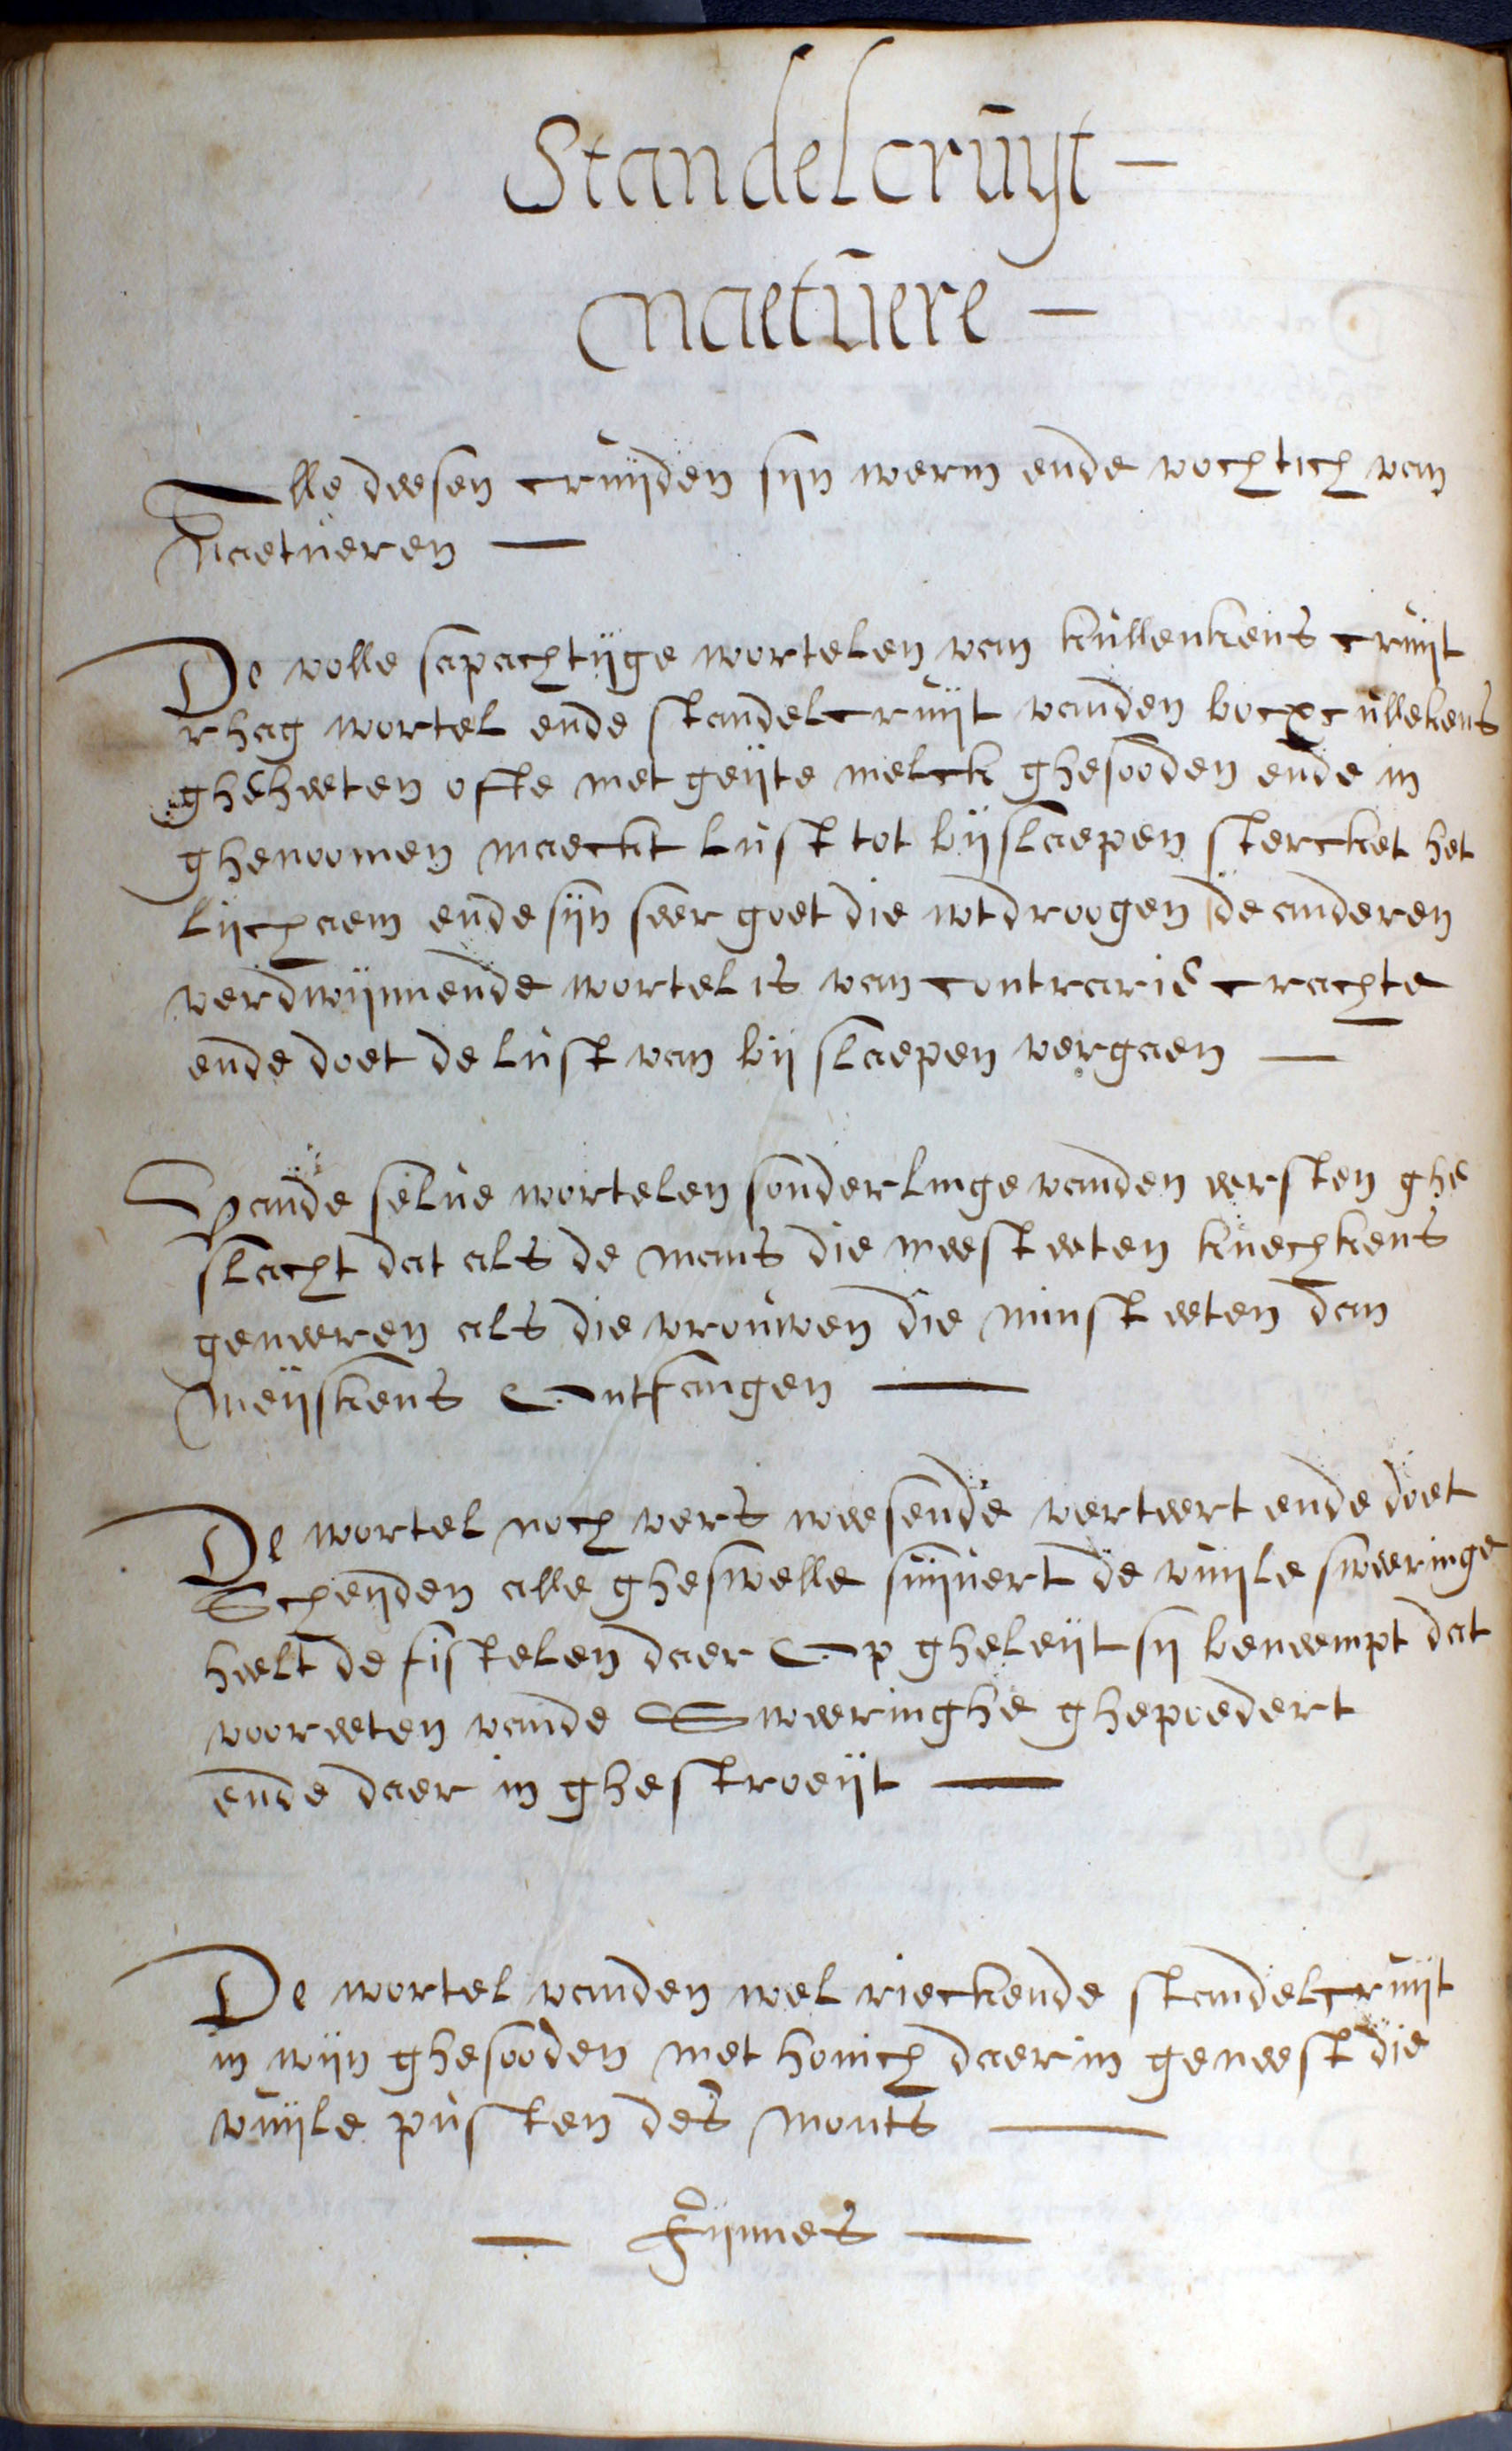 Standelcruijt —
naetuere —
Alle deesen cruijden sijn werm ende vochtich van
Naetueren —
De volle sapachtijge wortelen van kullenkens cruijt
rhag wortel ende standelcruijt vanden bocxcullekens
gheheeten ofte met geijte melck ghesooden ende in
ghenoomen maeckt lust tot bijslaepen stercket het
lijchaem ende sijn seer goet die wtdroogen de anderen
verdwijnnende wortel is van contrarie crachte
ende doet de lust van bij slaepen vergaen —
Vande selue wortelen sonderlinge vanden eersten ghe
slacht dat als de mans die meest eeten knechkens
geneeren als die vrouwen die minst eeten dan
Meijskens Ontfangen —
De wortel noch vers weesende verteert ende doet
Scheijden alle gheswelle suijuert de vuijle sweeringe
heelt de fistelen daer Op gheleijt sij beneempt dat
voorteeten vande Sweeringhe ghepoedert
ende daer in ghestroeijt —
De wortel vanden wel rieckende standelcruijt
in wijn ghesooden met honich daer in geneest die
vuijle puisten des monts —
— Fijnnes —